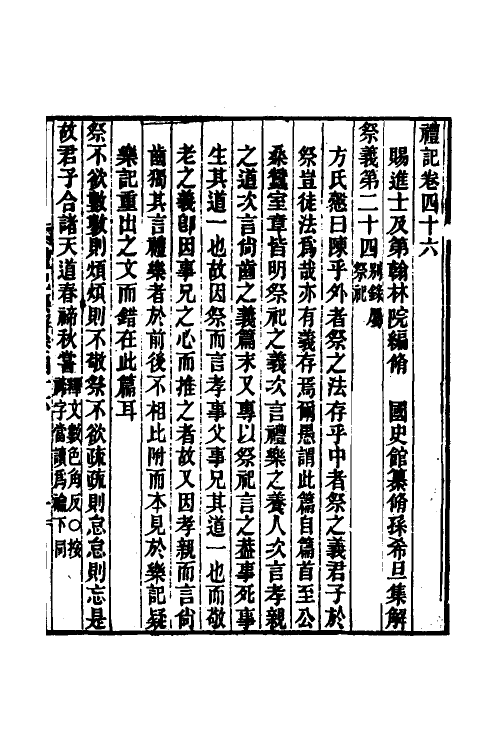 禮記卷四十六
賜進士及第翰林院編脩　國史館纂脩孫希旦集解
祭義第二十四別錄屬祭祀
方氏慤曰陳乎外者祭之法存乎中者祭之義君子於
祭豈徒法爲哉亦有義存焉爾愚謂此篇自篇首至公
桑蠶室章皆明祭祀之義次言禮樂之養人次言孝親
之道次言尙齒之義篇末又專以祭祀言之葢事死事
生其道一也故因祭而言孝事父事兄其道一也而敬
老之義卽因事兄之心而推之者故又因孝親而言尙
齒獨其言禮樂者於前後不相比附而本見於樂記疑
樂記重出之文而錯在此篇耳
祭不欲數數則煩煩則不敬祭不欲疏疏則怠怠則忘是
故君子合諸天道春禘秋嘗釋文數色角反○按禘字當讀爲禴下同